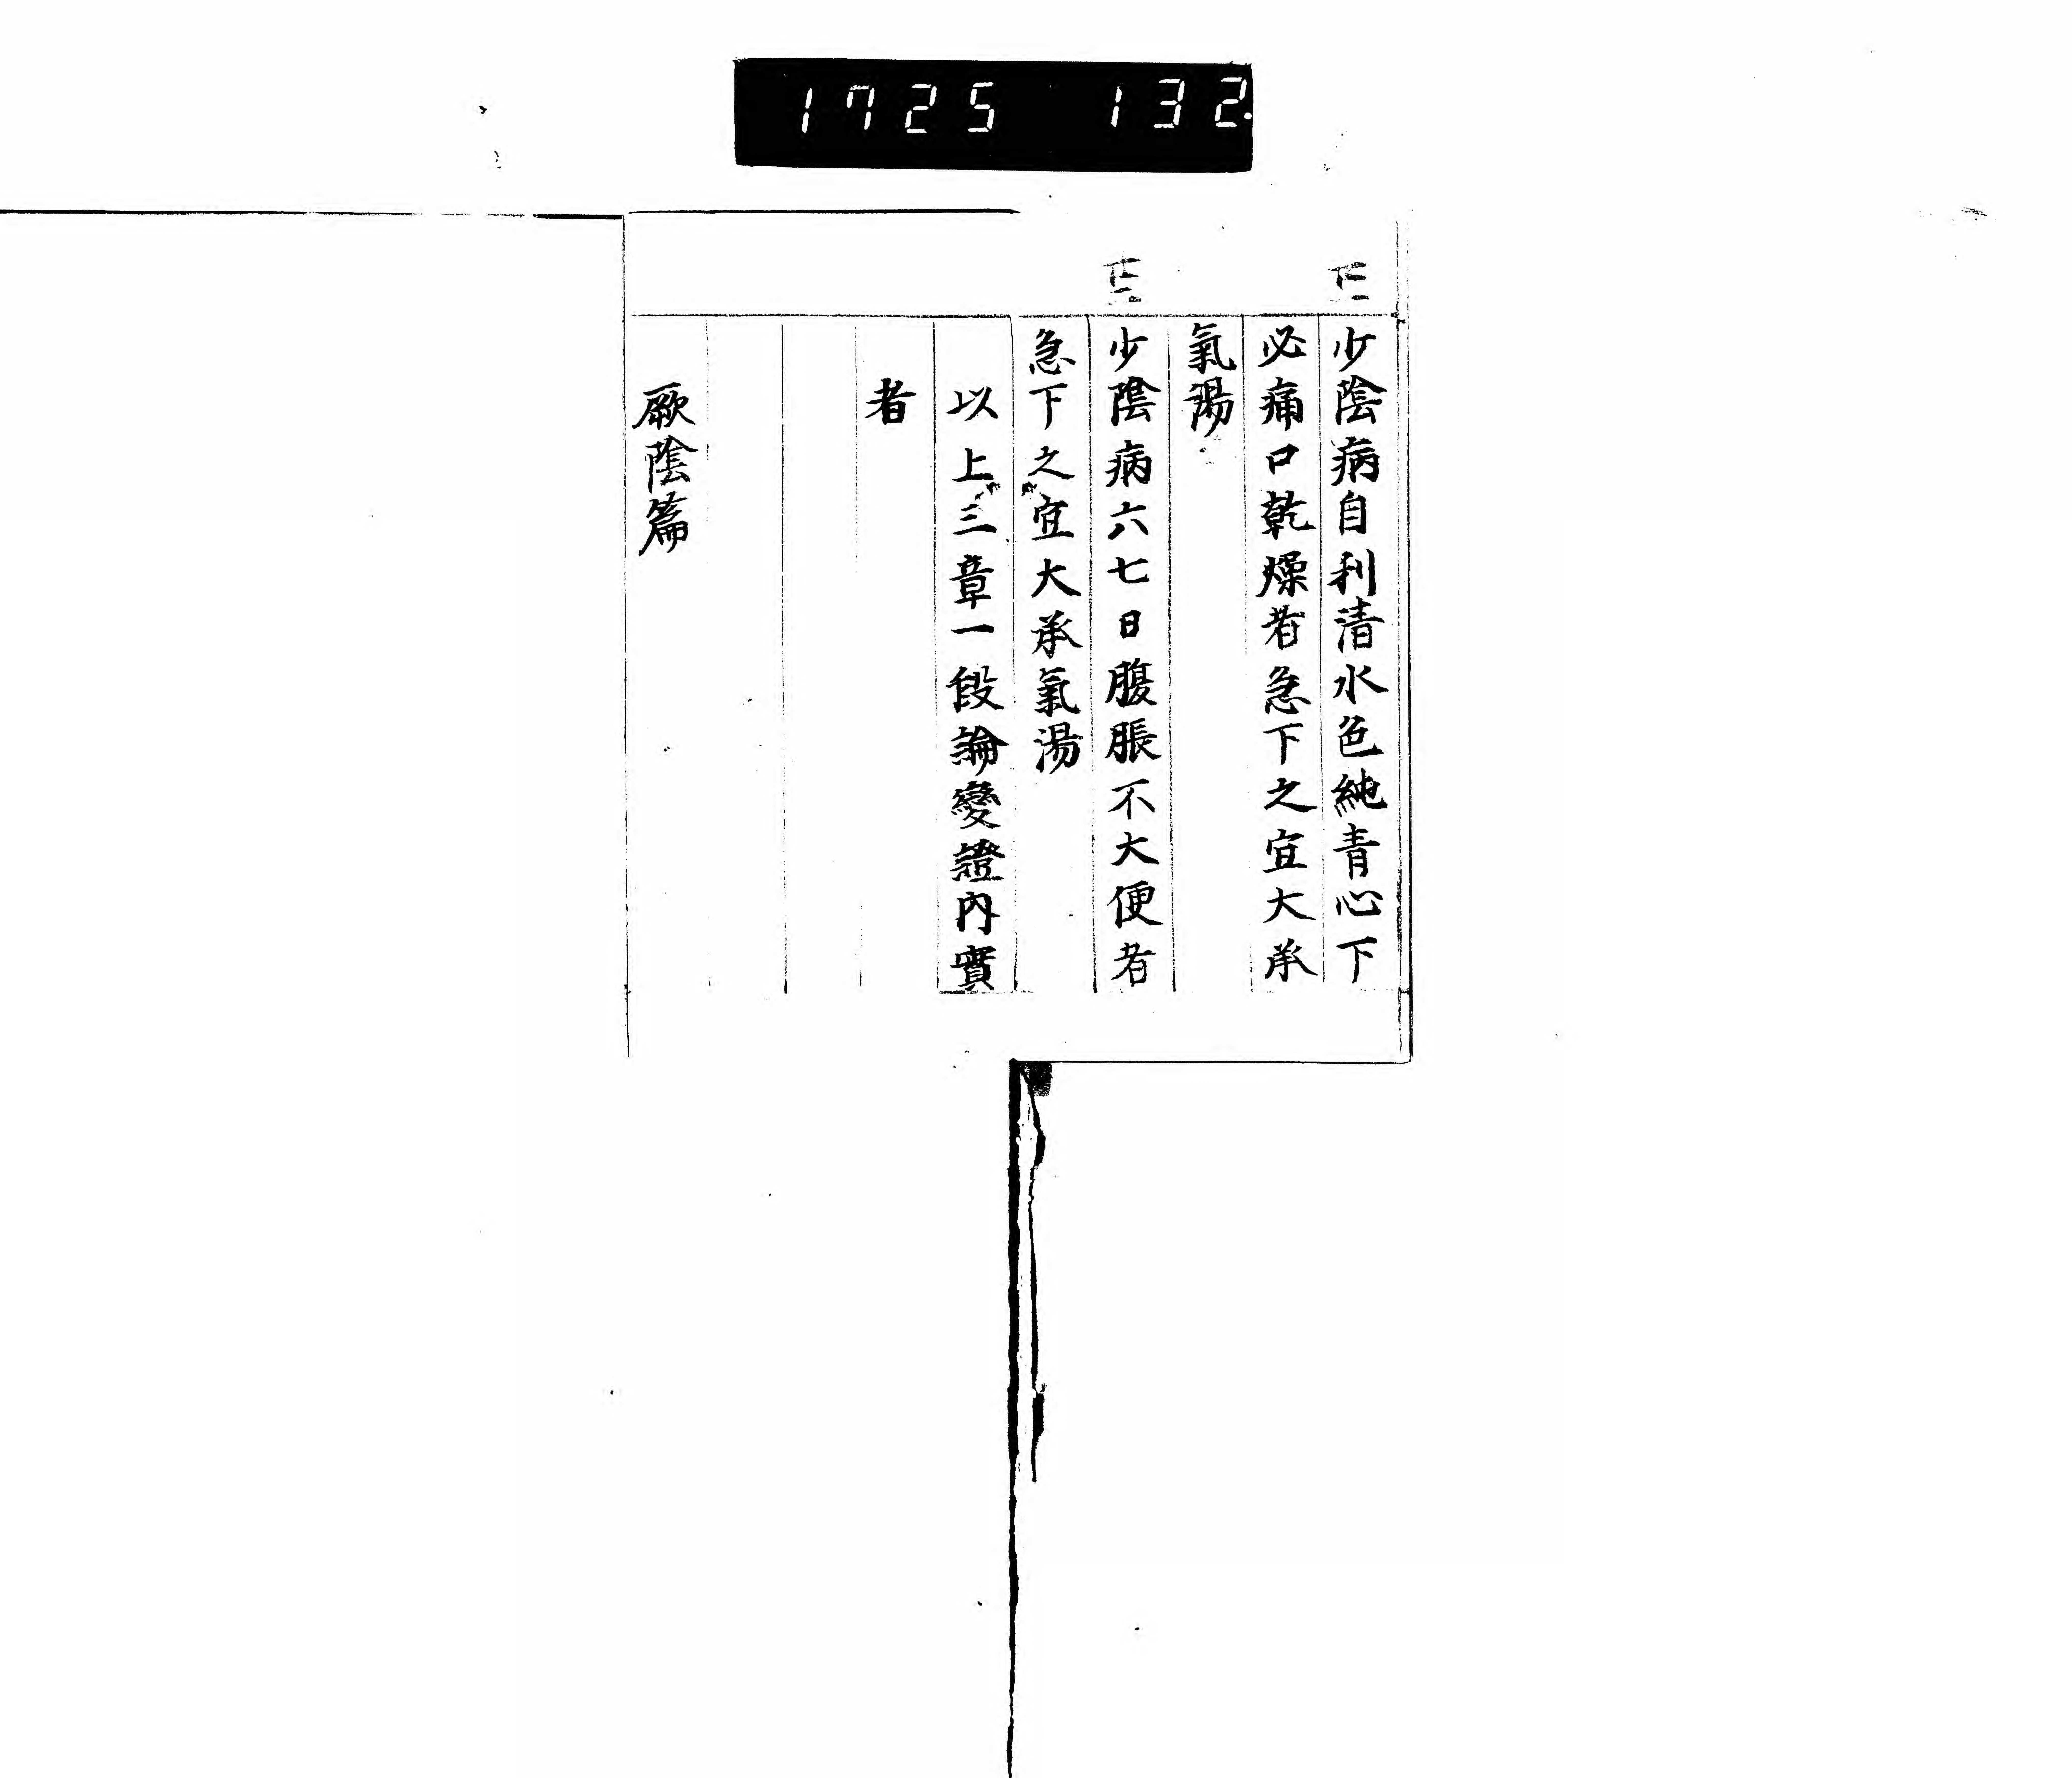 1725 132
少陰病自利清水色純青心下
必痛口乾燥者急下之宜大承
氣湯
少陰病六七日腹脹不大便者
急下之宜大承氣湯
以上三章一段論變證內實
者
厥陰篇